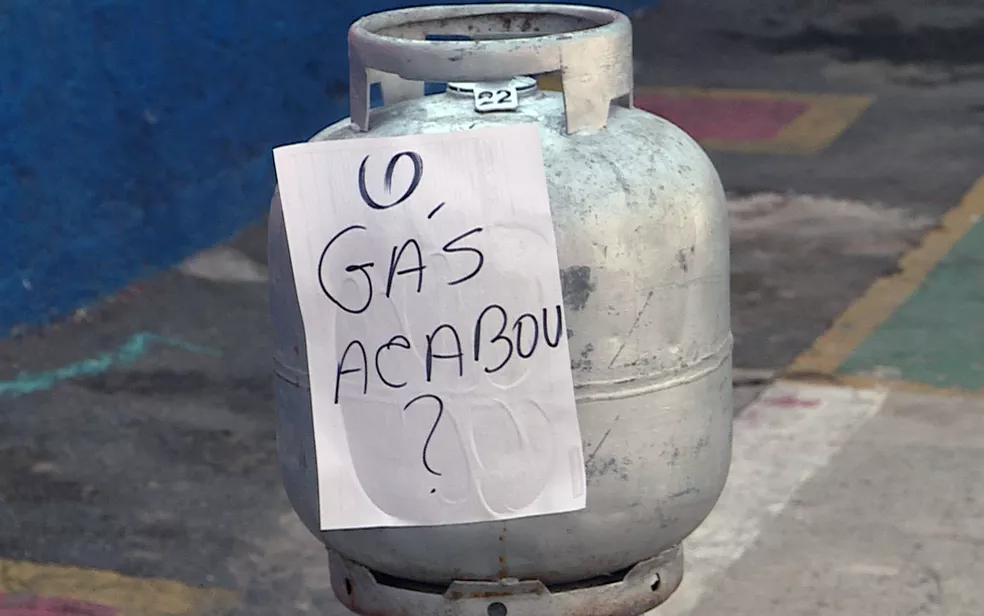 22
O
GÁS
ACABOU
?